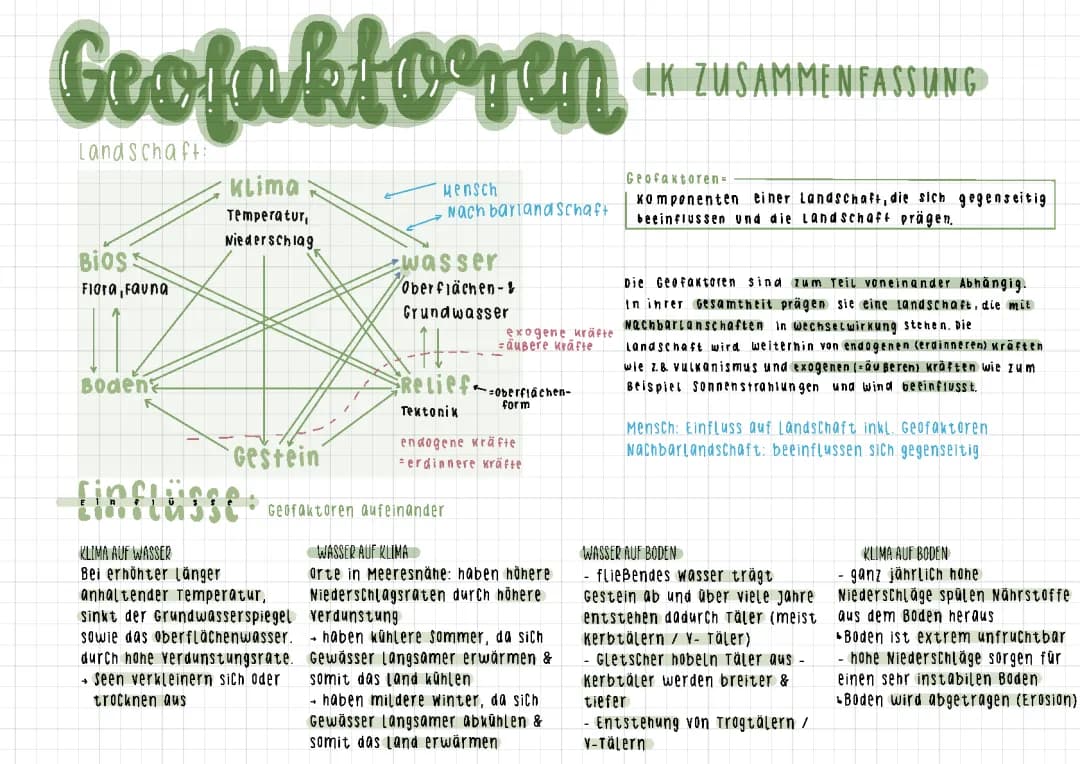 Geofaktoren
LK ZUSAMMENFASSUNG
Landschaft:
Klima
Temperatur,
Niederschlag
Mensch
Nachbarlandschaft
Bios
Flora, Fauna
Wasser
Oberflächen- &
Grundwasser
exogene Kräfte
= äußere Kräfte
Boden
Relief
=Oberflächen-
form
Tektonik
Gestein
endogene Kräfte
= erdinnere Kräfte
Geofaktoren=
Komponenten einer Landschaft, die sich gegenseitig
beeinflussen und die Landschaft prägen.
Die Geofaktoren sind zum Teil voneinander Abhängig.
In ihrer Gesamtheit prägen sie eine Landschaft, die mit
Nachbarlanschaften in Wechselwirkung stehen. Die
Landschaft wird weiterhin von endogenen (erdinneren) Kräften
wie z.B. Vulkanismus und exogenen (=äußeren) Kräften wie zum
Beispiel Sonnenstrahlungen und Wind beeinflusst.
Mensch: Einfluss auf Landschaft inkl. Geofaktoren
Nachbarlandschaft: beeinflussen sich gegenseitig
Einflüsse:
Einflüsse
Geofaktoren aufeinander
KLIMA AUF WASSER
Bei erhöhter länger
anhaltender Temperatur,
sinkt der Grundwasserspiegel
sowie das Oberflächenwasser.
durch hohe Verdunstungsrate.
→ Seen verkleinern sich oder
trocknen aus
WASSER AUF KLIMA
Orte in Meeresnähe: haben höhere
Niederschlagsraten durch höhere
Verdunstung
→ haben kühlere Sommer, da sich
Gewässer langsamer erwärmen &
somit das Land kühlen
→ haben mildere Winter, da sich
Gewässer langsamer abkühlen &
somit das Land erwärmen
WASSER AUF BODEN
- fließendes Wasser trägt
Gestein ab und über viele Jahre
entstehen dadurch Täler (meist
Kerbtälern / V- Täler)
- Gletscher hobeln Täler aus -
Kerbtäler werden breiter &
tiefer
- Entstehung von Trogtälern /
V-Tälern
KLIMA AUF BODEN
- ganz jährlich hohe
Niederschläge spülen Nährstoffe
aus dem Boden heraus
↳Boden ist extrem unfruchtbar
- hohe Niederschläge sorgen für
einen sehr instabilen Boden
↳Boden wird abgetragen (Erosion)